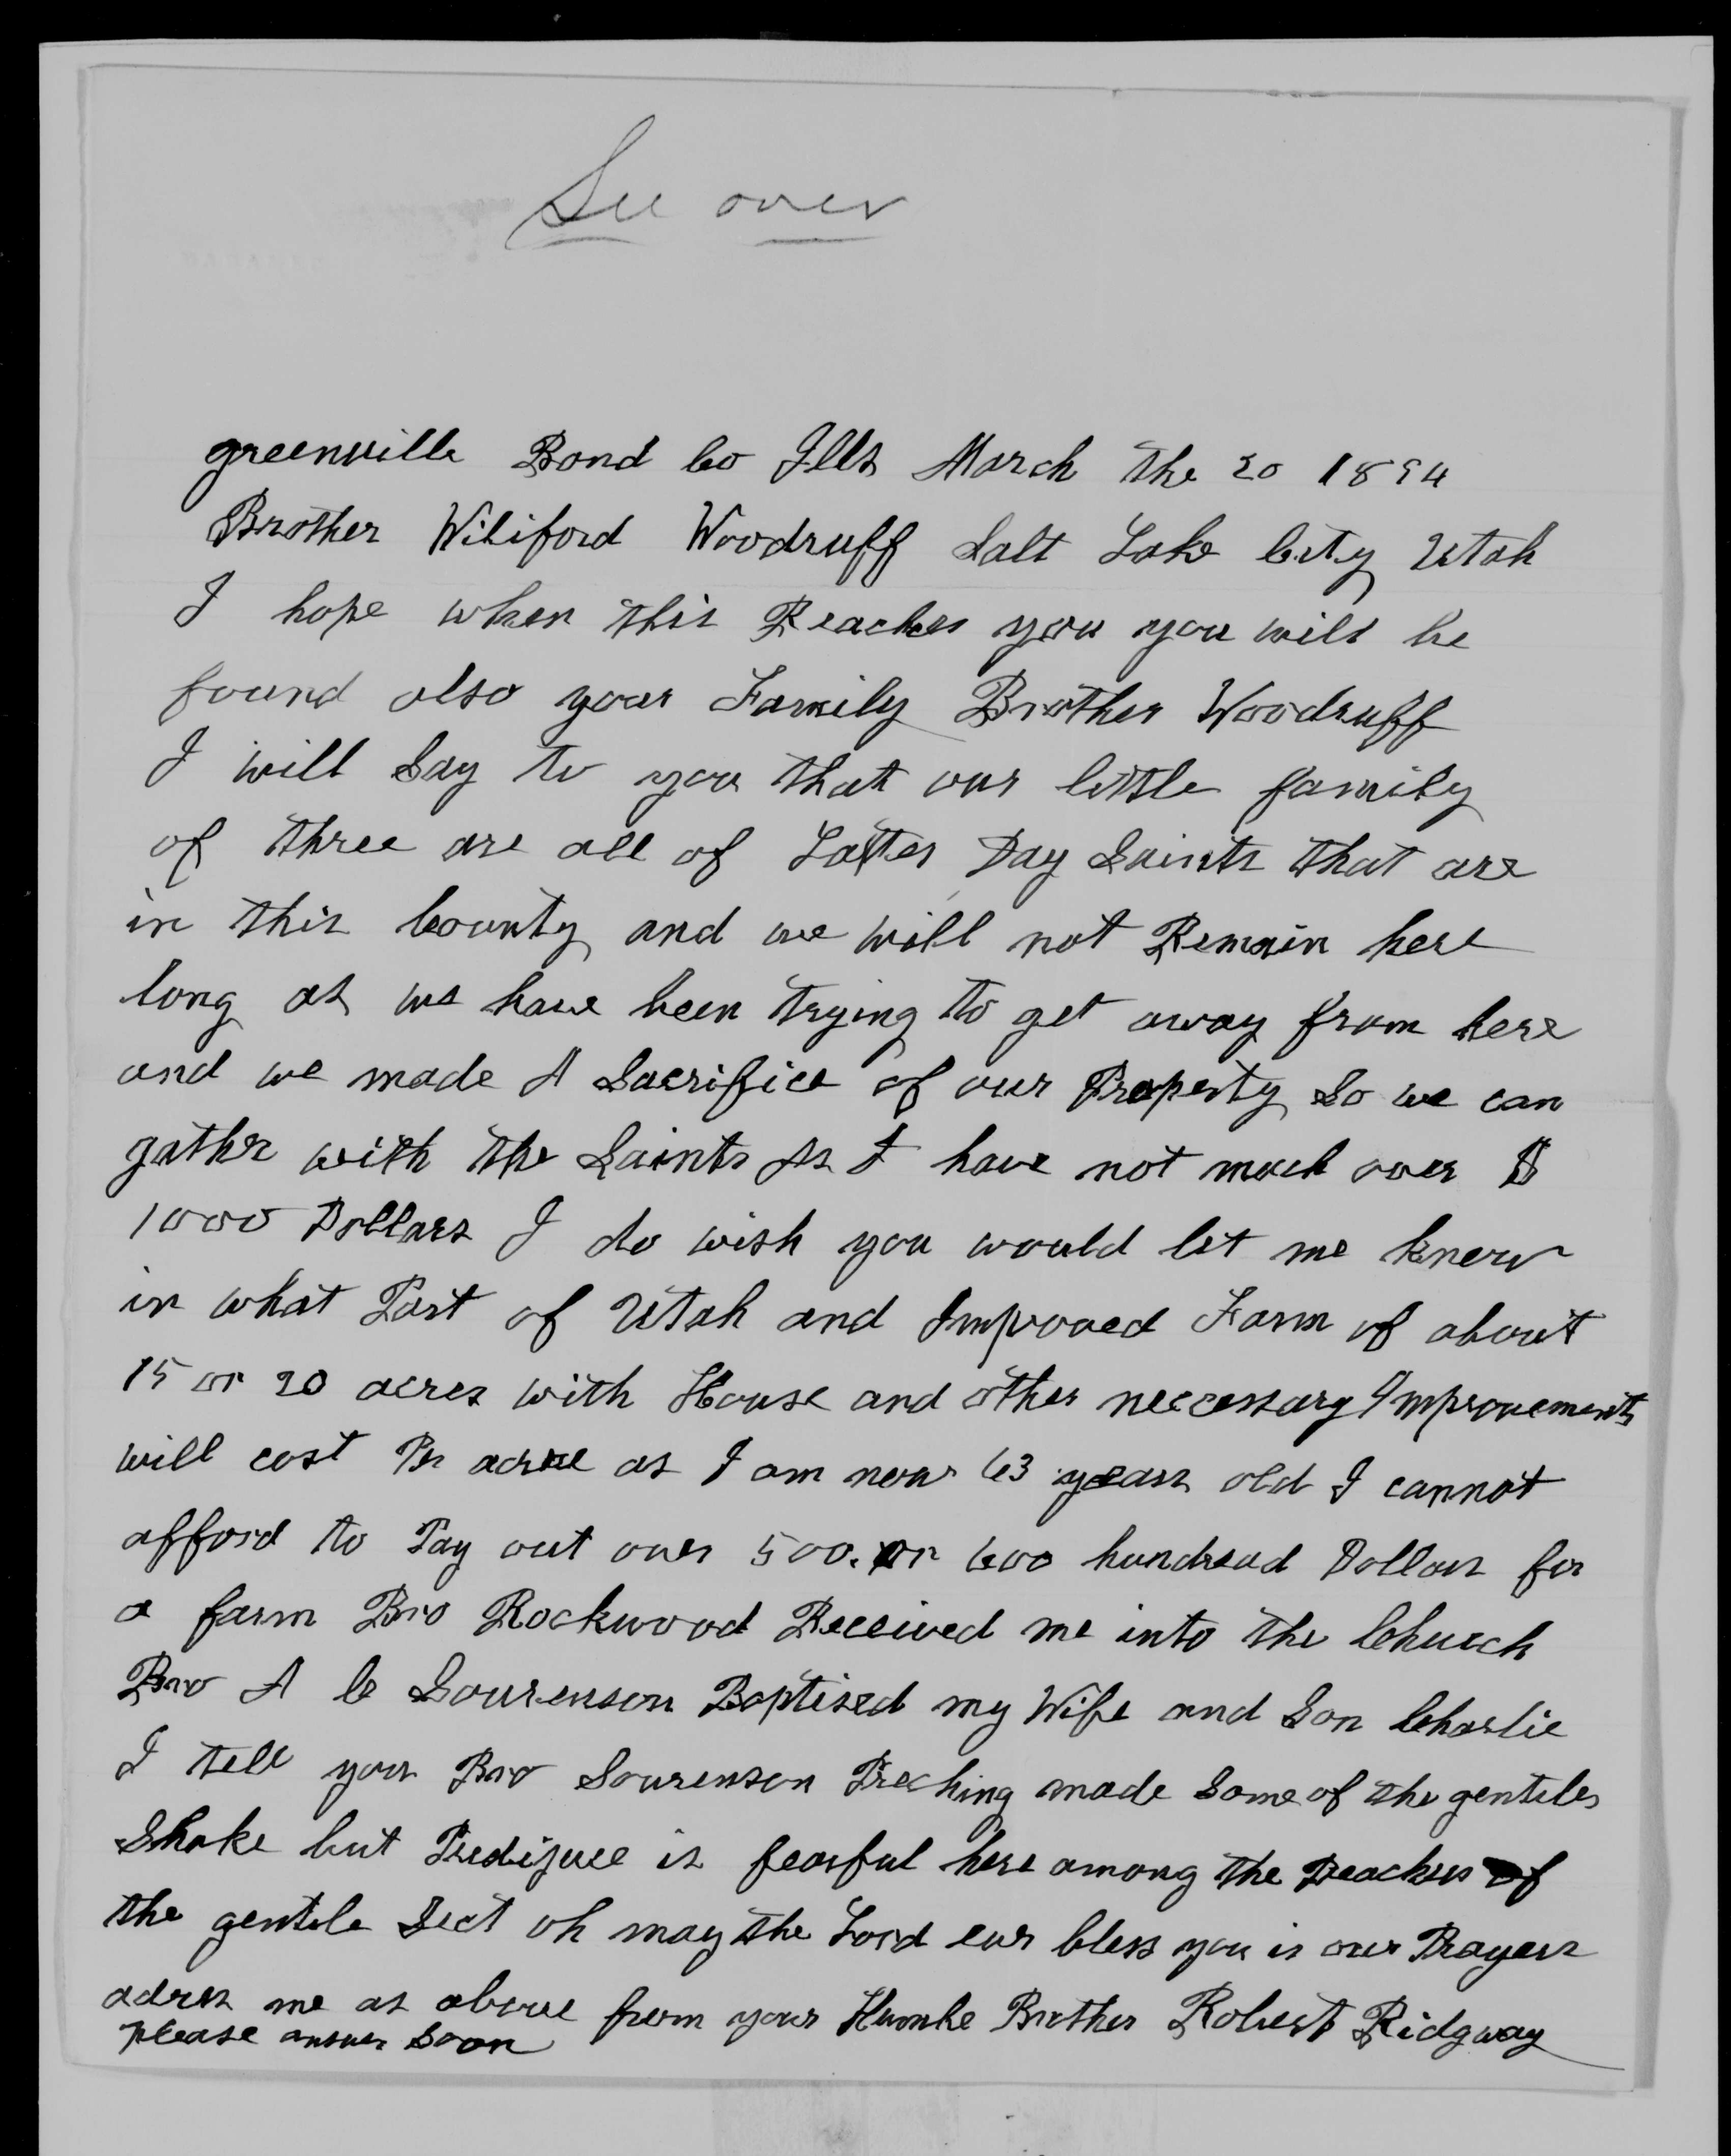 See over
greenville Bond Co Ills March the 20 1894
Brother Wiliford Woodruff Salt Lake City Utah
I hope when this Reaches you you will be
found also your Family Brother Woodruff
I will Say to you that our little family
of three are all of Latter Day Saints that are
in this County and we will not Remain here
long as we have been trying to get away from here
and we made A Sacrifice of our Property So we can
gather with the Saints As I have not much over $
1000 Dollars I do wish you would let me know
in what Part of Utah and Improved Farm of about
15 or 20 acres with House and other neccessary Improvements
will cost Per acree as I am now 63 years old I cannot
afford to Pay out over 500. or 600 hundread Dollars for
a farm Bro Rockwood Received me into the Church
Bro A C Sourenson Baptised my Wife and Son Charlie
I tell you Bro Sourenson Preching made Some of the gentiles
Shake but Predijuce is fearful here among the Preachers of
the gentile Sect oh may the Lord ever bless you is our Prayers
adress me as above from your Humble Brother Robert Ridgway
please answer Soon